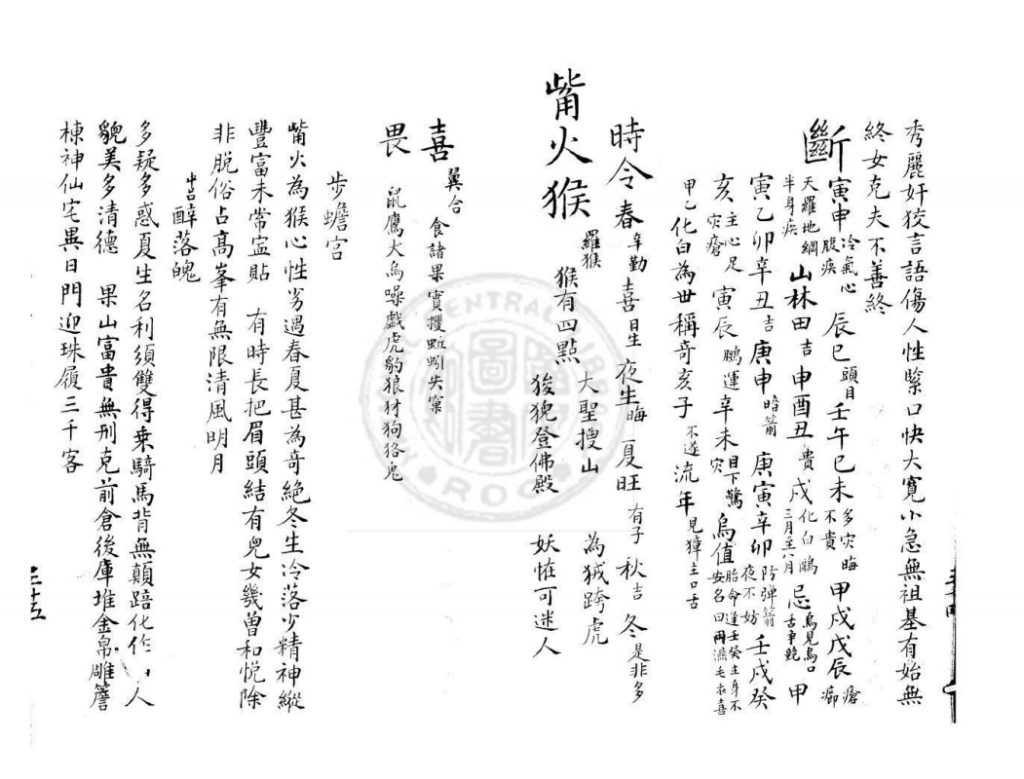 秀麗奸狡言語傷人性緊口快大寬小急無祖基有始無
終女克夫不善終
斷 寅申冷氣心腹疾 辰巳頭目 壬午巳未多災晦不貴 甲戌戊辰瘡癤
天羅地網半身疾 山林田吉 申酉丑貴 戌化白鷴三月至八月 忌鳥見鳥口舌爭競 甲
寅乙卯辛丑吉 庚申暗箭 庚寅辛卯防彈箭夜不妨 壬戌癸
亥主心足災瘡 寅辰鵬運 辛未目下驚災 鳥值胎命逢壬癸主身不安名曰雨濕毛衣喜
甲乙化白為世稱奇 亥子不遂 流年見獐主口舌
時令 春辛勤 喜日生 夜生晦 夏旺有子 秋吉 冬是非多
觜火猴 羅猴 猴有四點 大聖搜山 為狨跨虎
狻猊登佛殿 妖怪可迷人
喜 翼合 食諸果實攫蚯蚓失窠
畏 鼠鷹犬烏噪戲虎豹狼犲狗狢鬼
步蟾宮
觜火為猴心性劣遇春夏甚為奇絕冬生冷落少精神縱
豐富未常寍貼 有時長把眉頭結有兒女幾曾和悅除
非脫俗占高峯有無限清風明月
醉落魄
多疑多惑夏生名利須雙得乗騎馬背無顛踣化作人
貌美多清德 果山富貴無刑克前倉後庫堆金帛雕簷
棟神仙宅異日門迎珠履三千客
三十五